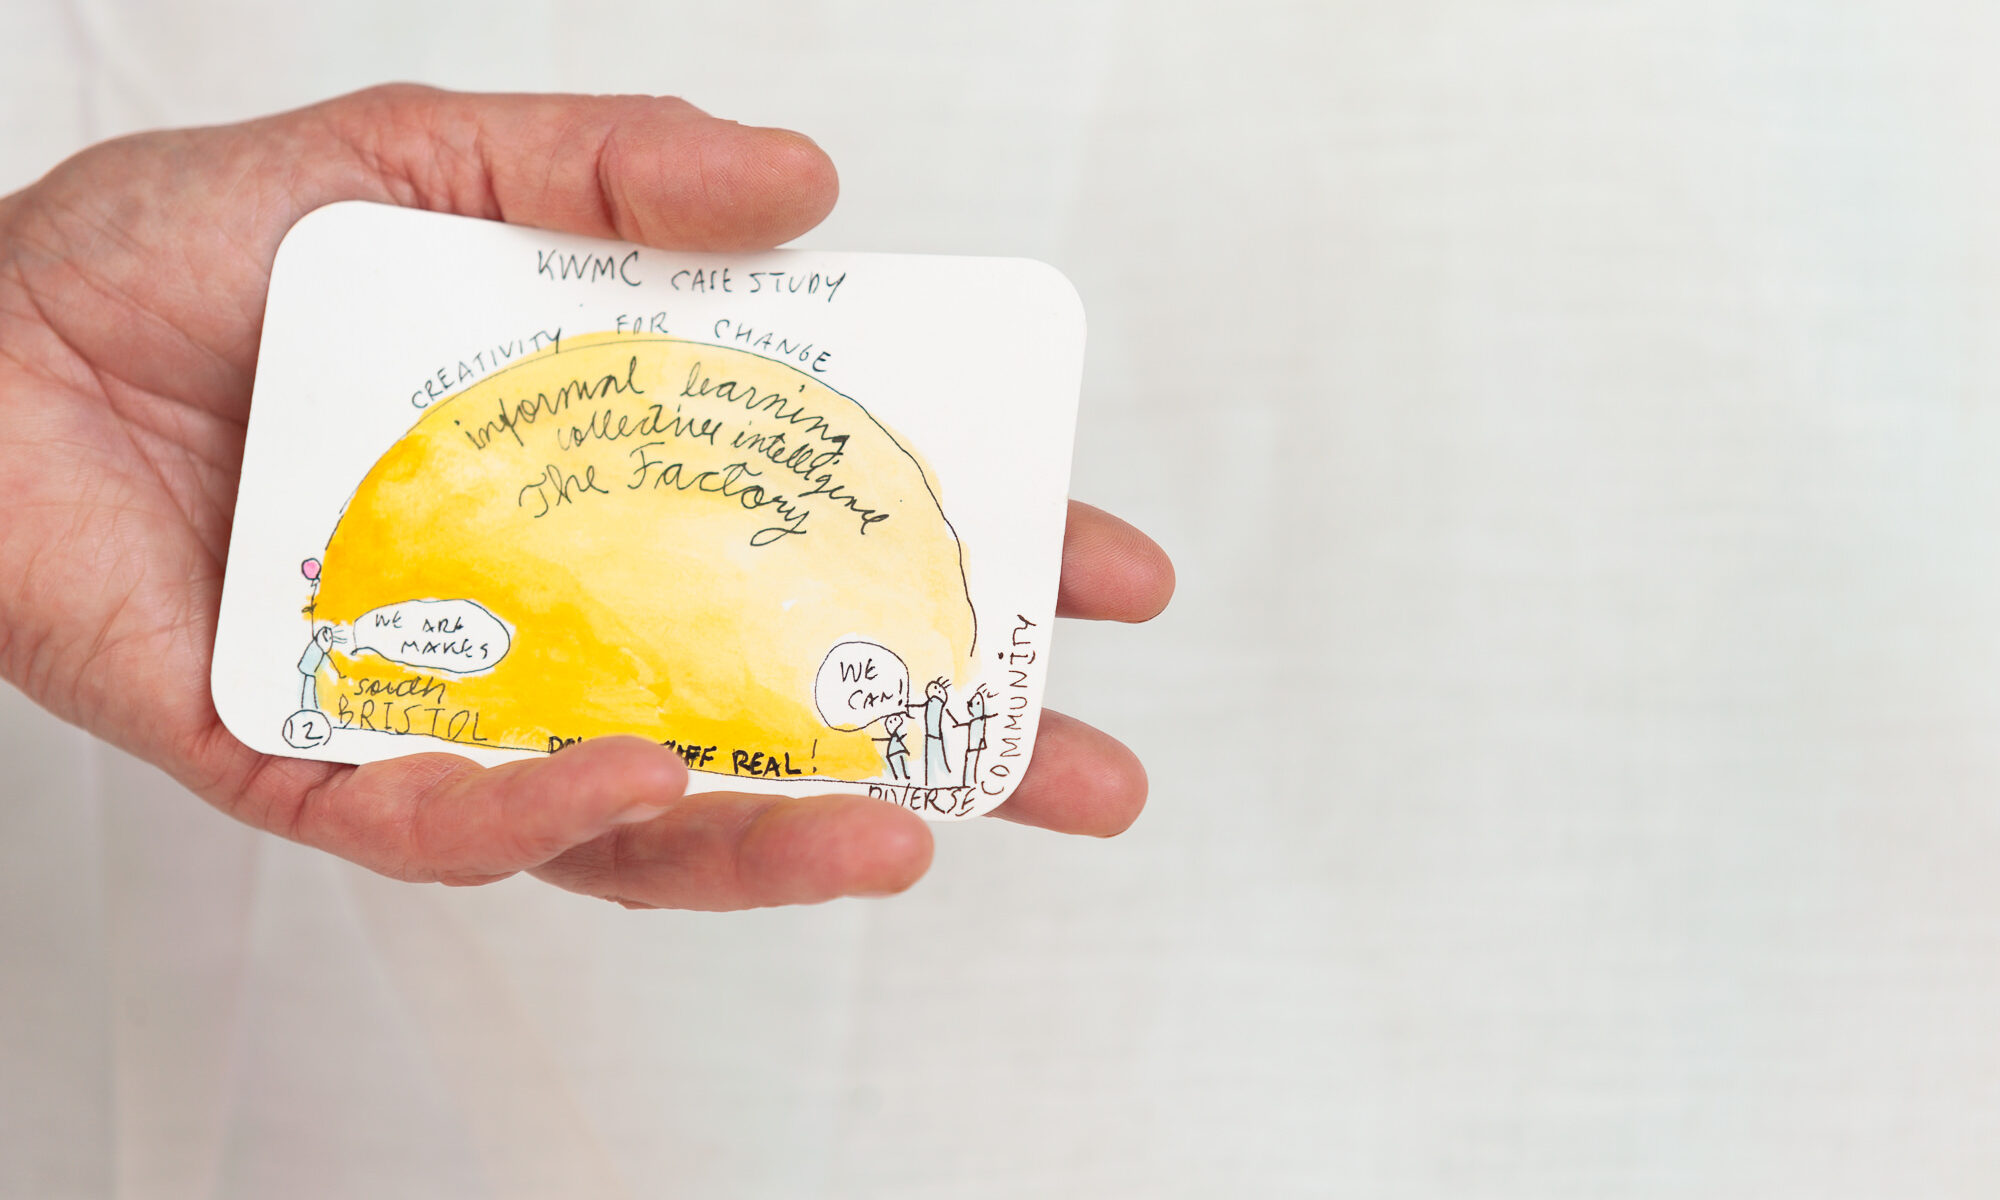 KWMC CASE STUDY
CREATIVITY FOR CHANGE
informal learning
collective intelligence
The Factory
WE ARE
MAKERS
WE
CAN!
south
BRISTOL
12
REAL!
DIVERSE
COMMUNITY